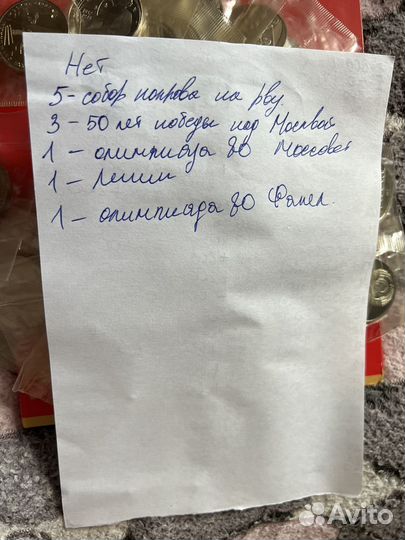 Нет
5 - собор покрова на рву.
3 - 50 лет победы под Москвой
1 - олимпиада 80 Моссовет
1 - Ленин
1 - олимпиада 80 Факел.
Avito